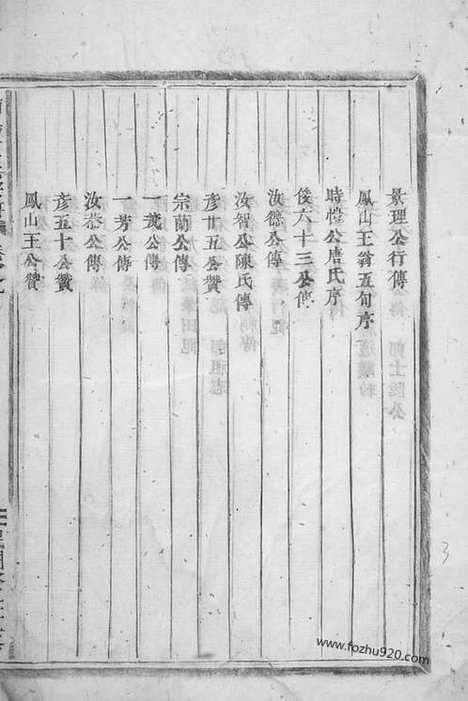 景理公行傳
鳳山王翁五旬序
時愷公唐氏序
俊六十三公傳
汝德公傳
汝智公陳氏傳
彥廿五公贊
宗蘭公傳
一茂公傳
一芳公傳
汝恭公傳
彥五十公贊
鳳山王公贊
3
www.fozhu920.com